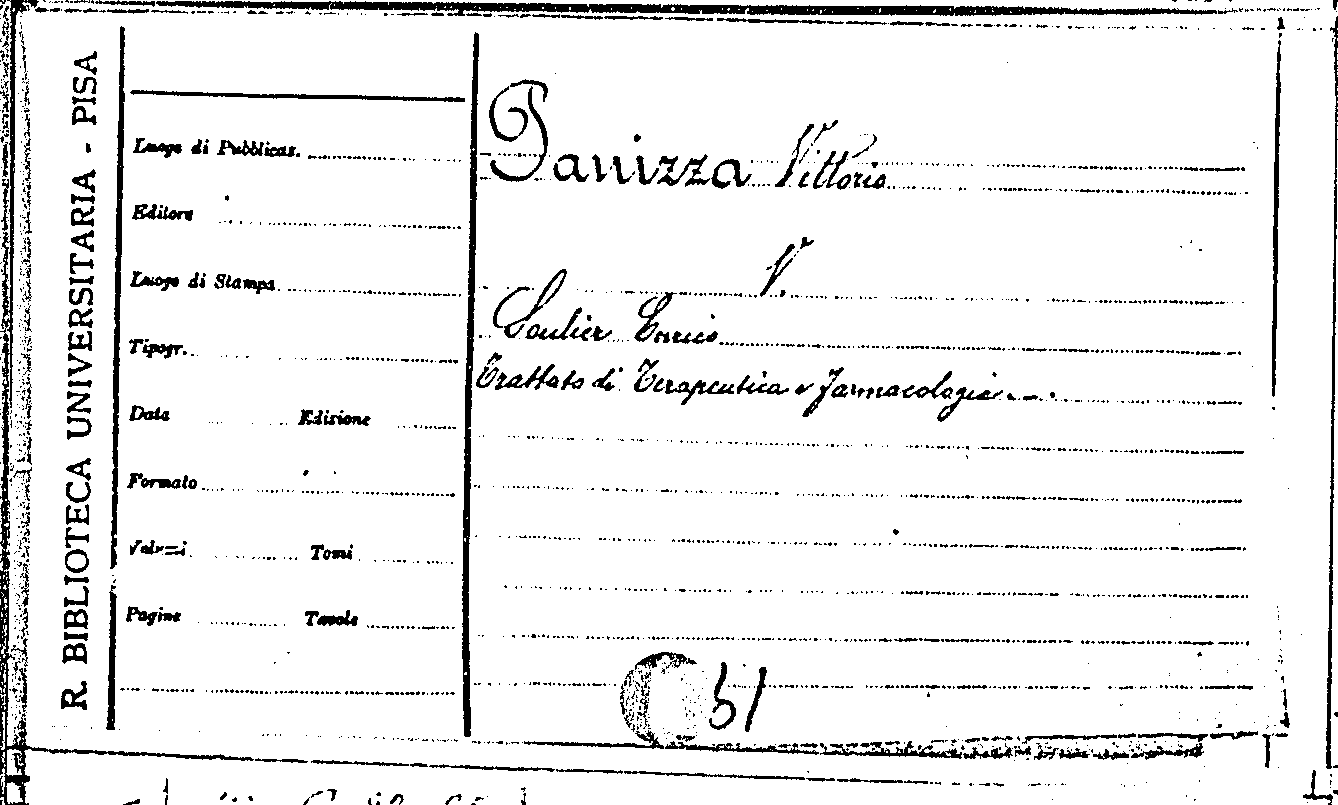 R. BIBLIOTECA UNIVERSITARIA - PISA
Luogo di Pubblicaz.
Editore
Luogo di Stampa
Tipogr.
Data Edizione
Formato
Volumi Tomi
Pagine Tavole
Panizza Vittorio
V.
Soulier Enrico
Trattato di Terapeutica e farmacologia ....
51